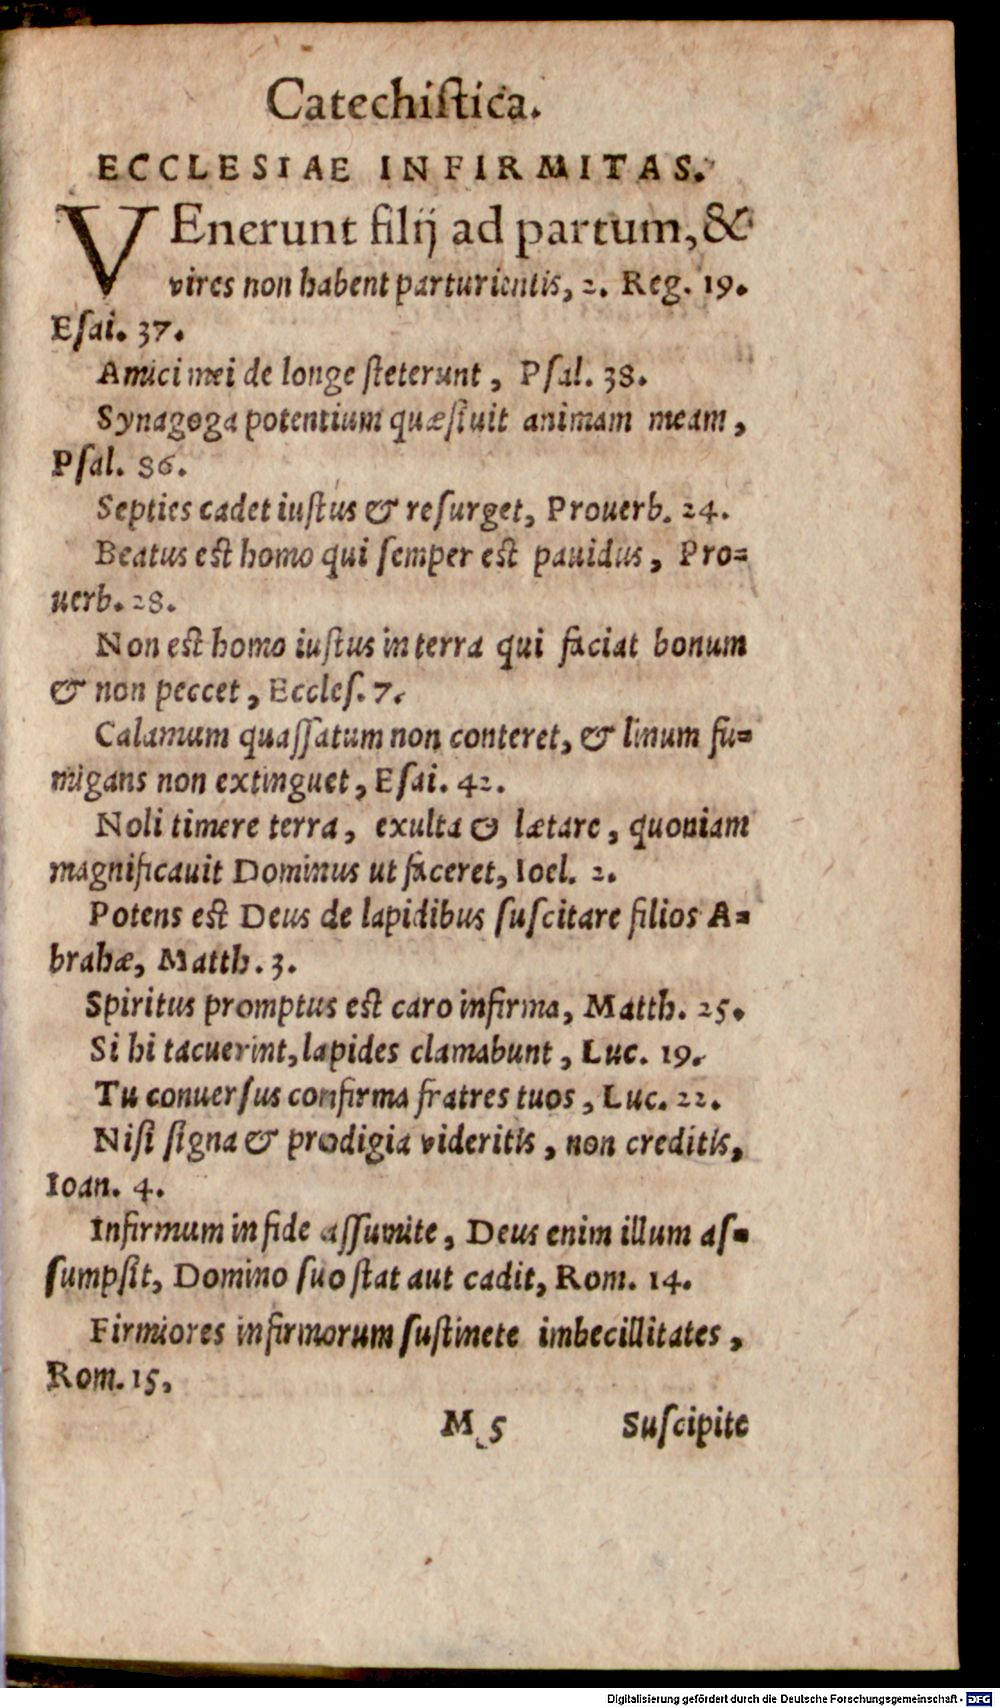 Catechiſtica.
ECCLESIAE INFIRMITAS.
VEnerunt filij ad partum, &
vires non habent parturientis, 2. Reg. 19.
Eſai. 37.
Amici mei de longe ſteterunt, Pſal. 38.
Synagoga potentium quæſiuit animam meam,
Pſal. 86.
Septies cadet iuſtus & reſurget, Prouerb. 24.
Beatus eſt homo qui ſemper eſt pauidus, Pro=
uerb. 28.
Non eſt homo iuſtus in terra qui faciat bonum
& non peccet, Eccleſ. 7.
Calamum quaſſatum non conteret, & linum fu=
migans non extinguet, Eſai. 42.
Noli timere terra, exulta & lætare, quoniam
magnificauit Dominus ut faceret, Ioel. 2.
Potens eſt Deus de lapidibus ſuſcitare filios A=
brahæ, Matth. 3.
Spiritus promptus eſt caro infirma, Matth. 25.
Si hi tacuerint, lapides clamabunt, Luc. 19.
Tu conuerſus confirma fratres tuos, Luc. 22.
Niſi ſigna & prodigia videritis, non creditis,
Ioan. 4.
Infirmum in fide aſſumite, Deus enim illum aſ=
ſumpſit, Domino ſuo ſtat aut cadit, Rom. 14.
Firmiores infirmorum ſuſtinete imbecillitates,
Rom. 15,
M 5 Suſcipite
Digitalisierung gefördert durch die Deutsche Forschungsgemeinschaft - DFG